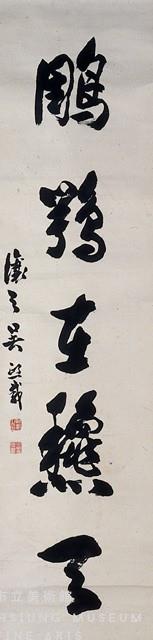 鵰鶚在龝天
讓之吳熙載
市立美術館
HSIUNG MUSEUM
FINE-ARTS